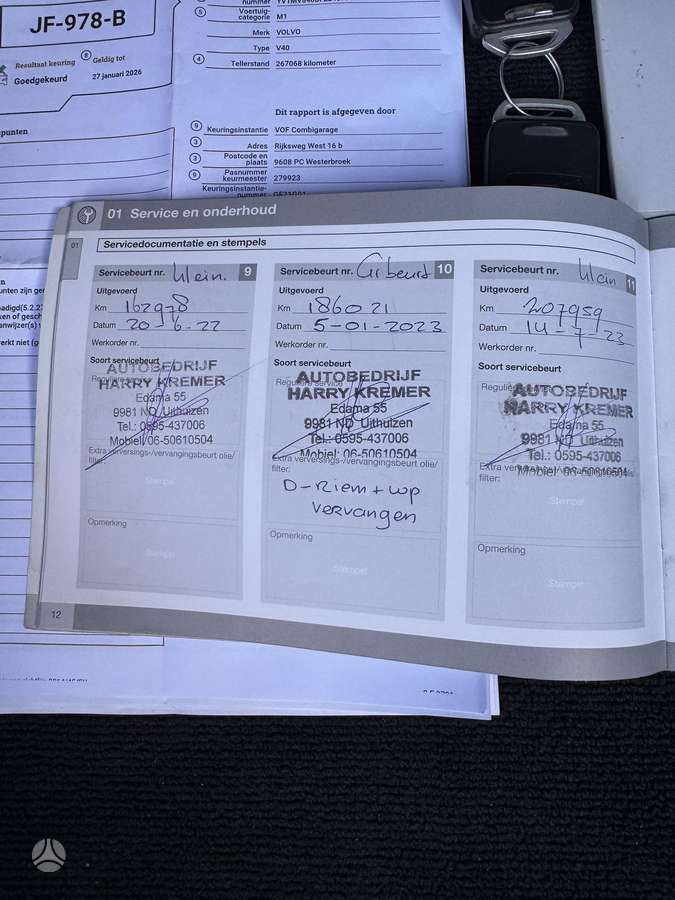 JF-978-B
Resultaat keuring
Goedgekeurd
8 Geldig tot
27 januari 2026
punten
nummer
5 Voertuig-
categorie M1
Merk VOLVO
Type V40
4 Tellerstand 267068 kilometer
Dit rapport is afgegeven door
9 Keuringsinstantie VOF Combigarage
3 Adres Rijksweg West 16 b
3 Postcode en
plaats 9608 PC Westerbroek
9 Pasnummer
keurmeester 279923
Keuringsinstantie-
01 Service en onderhoud
01
Servicedocumentatie en stempels
Servicebeurt nr. klein. 9
Uitgevoerd
Km 162978
Datum 20-6-22
Werkorder nr.
Soort servicebeurt
AUTOBEDRIJF
HARRY KREMER
Edama 55
9981 ND Uithuizen
Tel.: 0595-437006
Mobiel: 06-50610504
Extra verversings-/vervangingsbeurt olie/
filter:
Stempel
Opmerking
Stempel
Servicebeurt nr. Gr beurt 10
Uitgevoerd
Km 186021
Datum 5-01-2023
Werkorder nr.
Soort servicebeurt
Reguliere service
AUTOBEDRIJF
HARRY KREMER
Edama 55
9981 ND Uithuizen
Tel.: 0595-437006
Mobiel: 06-50610504
Extra verversings-/vervangingsbeurt olie/
filter:
D-Riem + wp
vervangen
Opmerking
Stempel
Servicebeurt nr. klein 11
Uitgevoerd
Km 207959
Datum 14-7-23
Werkorder nr.
Soort servicebeurt
AUTOBEDRIJF
HARRY KREMER
Edama 55
9981 ND Uithuizen
Tel.: 0595-437006
Mobiel: 06-50610504
filter:
Stempel
Opmerking
Stempel
12